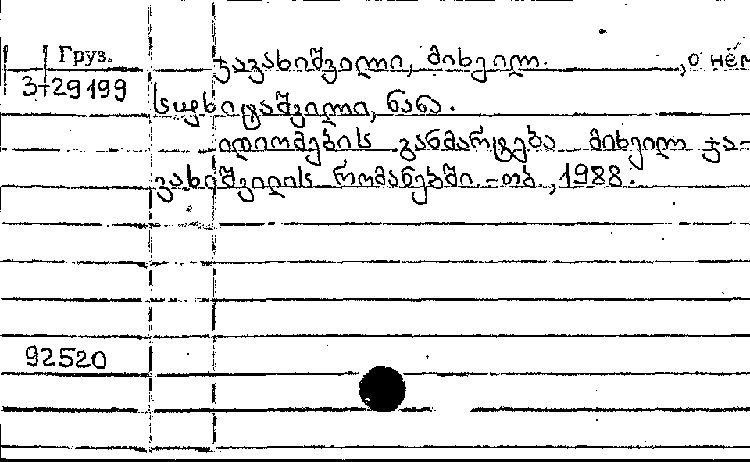 Груз.
ჯავახიშვილი, მიხეილ. , о нём
3-29199
ნანა.
იდიომების განმარტება მიხეილ ჯა-
ვახიშვილის რომანებში. - თბ, 1988.
92520